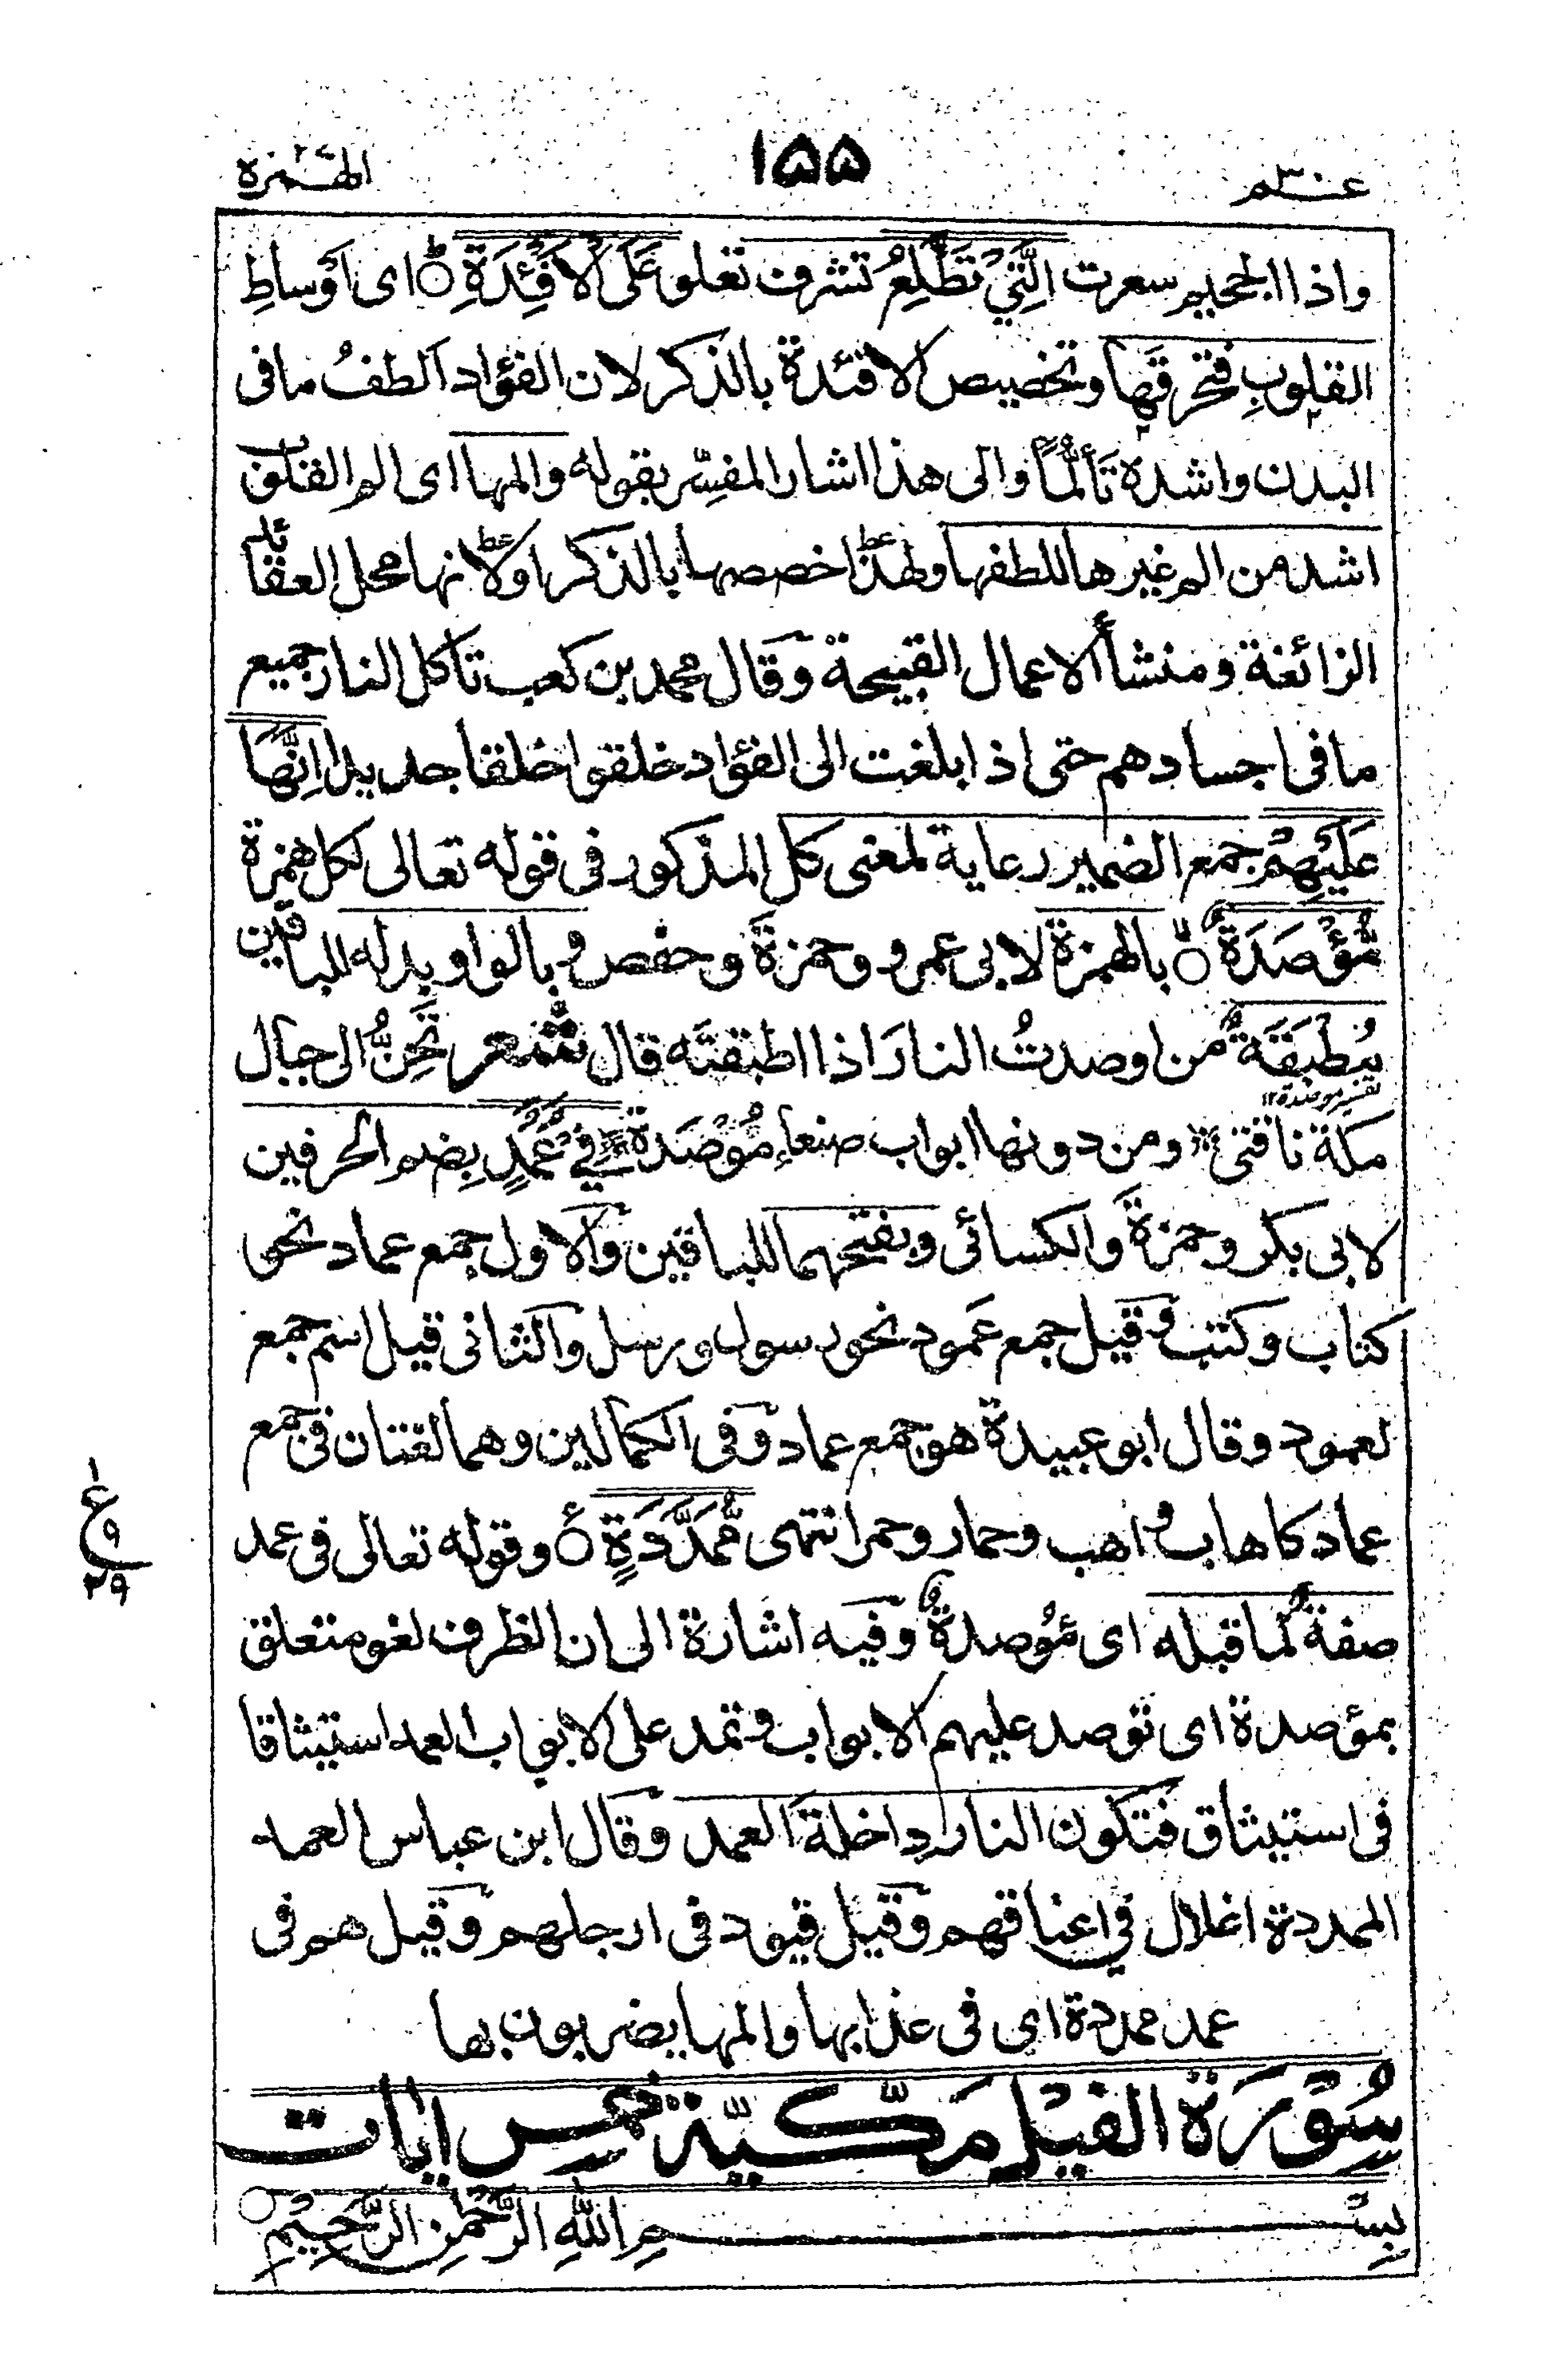 عـــم ٣٠
١٥٥
الهـــمزة
واذا الجحيم سعرت الَّتِيْ تَطَّلِعُ تشرف تعلو عَلَى الْاَفْئِدَةِ ای اَوْساطِ
القلوبِ فتحرقها وتخصيص الافئدة بالذكر لان الفؤاد اَلطفُ ما فی
البدن واشده تَأَلُّمًا والی هذا اشار المفسِّر بقوله والمها ای الم القلوب
اشد من الم غيرها للطفها ولهذا خصصها بالذكر او لانها محل العقائد
الزائغة ومنشأ الاعمال القبيحة وقال محمد بن كعب تأكل النار جميع
ما فی اجسادهم حتی اذا بلغت الی الفؤاد خلقوا خلقا جديدا اِنَّهَا
عَلَيْهِمْ جمع الضمير رعاية لمعنی كل المذكور فی قوله تعالی لكل همزة
مُّؤْصَدَةٌ بالهمزة لابی عمرو وحمزة وحفص وبالواو بدله للباقين
مُطْبَقَةٌ من اوصدتُ النارَ اذا اطبقتَه قال شعر تَحِنُّ الی جبال
تفسير موصدة ١٢
مكة ناقتی ومن دونها ابواب صنعاءِ مُوْصَدَة فِيْ عُمُدٍ بِضم الحرفين
لابی بكر وحمزة والكسائی وبفتحهما للباقين والاول جمع عماد نحو
كتاب وكتب وقيل جمع عَمود نحو رسول ورسل والثانی قيل اسم جمع
لعمود وقال ابو عبيدة هو جمع عماد وفی الكمالين وهما لغتان فی جمع
عماد كاهاب واهب وحمار وحمر انتهی مُّمَدَّدَةٍ وقوله تعالی فی عمد
صفة لما قبله ای مُؤصدةٌ وفيه اشارة الی ان الظرف لغو متعلق
بمؤصدة ای توصد عليهم الابواب وتمد علی الابواب العمد استيثاقا
فی استيثاق فتكون النار داخلة العمد وقال ابن عباس العمد
الممددة اغلال فی اعناقهم وقيل قيود فی ارجلهم وقيل هم فی
عمد ممددة ای فی عذابها والمها يضربون بها
ع
١
٩
٢٩
سُوْرَةُ الفيْل مَكّيّة خمس ايات
بِسْـــمِ اللهِ الرَّحْمٰنِ الرَّحِيْمِ